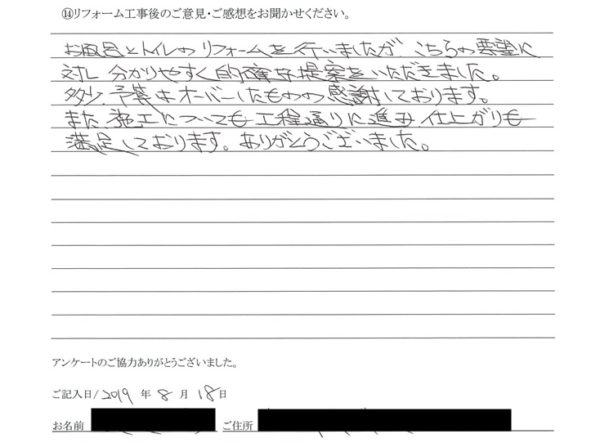 ⑭リフォーム工事後のご意見・ご感想をお聞かせください。
お風呂とトイレのリフォームを行いましたが、こちらの要望に
対し分かりやすく的確な提案をいただきました。
多少、予算はオーバーしたものの感謝しております。
また、施工についても工程通りに進み仕上がりも
満足しております。ありがとうございました。
アンケートのご協力ありがとうございました。
ご記入日/2019年8月18日
お名前 ご住所